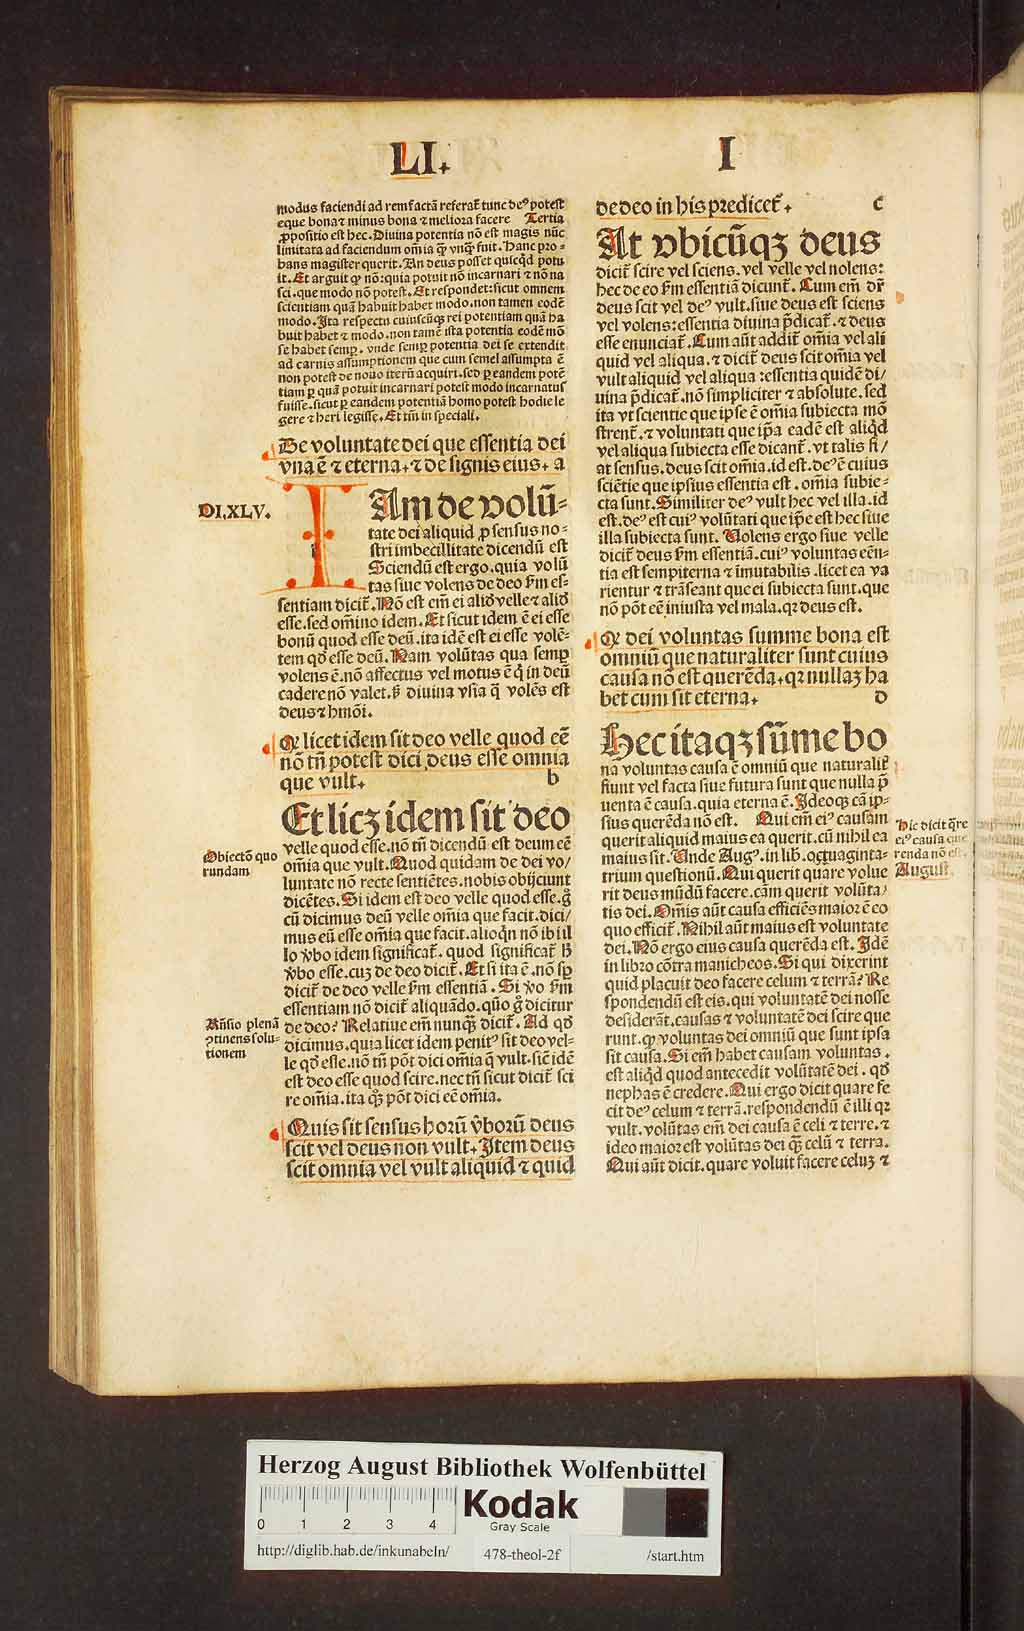 LI.
I
modus faciendi ad rem factã referat̃ tunc deꝰ potest
eque bona ⁊ minus bona ⁊ meliora facere Tertia
ꝓpositio est hec. Diuina potentia nõ est magis nũc
limitata ad faciendum om̃ia qꝫ vnqꝫ fuit. Hanc pro⸗
bans magister querit. An deus posset quicqd potu
it. Et arguit qꝫ nõ: quia potuit nõ incarnari ⁊ nõ na
sci. que modo nõ potest. Et respondet: sicut omnem
scientiam quã habuit habet modo. non tamen eodẽ
modo. Ita respectu cuiuscũqꝫ rei potentiam quã ha
buit habet ⁊ modo. non tamẽ ista potentia eodẽ mõ
se habet semꝑ. vnde semꝑ potentia dei se extendit
ad carnis assumptionem que cum semel assumpta ẽ
non potest de nouo iterũ acquiri. sed ꝑ eandem potẽ
tiam ꝑ quã potuit incarnari potest modo incarnatus
fuisse. sicut ꝑ eandem potentiã homo potest hodie le
gere ⁊ heri legisse. Et tm̃ in speciali.
De voluntate dei que essentia dei
vna ẽ ⁊ eterna. ⁊ de signis eius. a
DI.XLV.
IAm de volũ⸗
tate dei aliquid ꝓ sensus no⸗
stri imbecillitate dicendũ est
Sciendũ est ergo. quia volũ
tas siue volens de deo ẜm es⸗
sentiam dicit̃. Nõ est em̃ ei aliđ velle ⁊ aliđ
esse. sed om̃ino idem. Et sicut idem ẽ ei esse
bonũ quod esse deũ. ita idẽ est ei esse volẽ⸗
tem qđ esse deũ. Nam volũtas qua semꝑ
volens ẽ. nõ affectus vel motus ẽ q̃ in deũ
cadere nõ valet. ß diuina vsia q̃ volẽs est
deus ⁊ hmõi.
Qꝫ licet idem sit deo velle quod eẽ
nõ tñ potest dici deus esse omnia
que vult. b
Et licꝫ idem sit deo
velle quod esse. nõ tñ dicendũ est deum eẽ
om̃ia que vult. Quod quidam de dei vo/
luntate nõ recte sentiẽtes. nobis obijciunt
dicẽtes. Si idem est deo velle quod esse. g̊
cũ dicimus deũ velle om̃ia que facit. dici/
mus eũ esse om̃ia que facit. alioqn̄ nõ ibi il
lo v̾bo idem significat̃. quod significat̃ ß
v̾bo esse. cuꝫ de deo dicit̃. Et si ita ẽ. nõ sꝑ
dicit̃ de deo velle ẜm essentiã. Si v̾o ẜm
essentiam nõ dicit̃ aliquãdo. quõ g̊ dicitur
de deo? Relatiue em̃ nunqꝫ dicit̃. Ad qđ
dicimus. quia licet idem penitꝰ sit deo vel⸗
le qđ esse. nõ tñ põt dici om̃ia q̃ vult. sic̃ idẽ
est deo esse quod scire. nec tñ sicut dicit̃ sci
re om̃ia. ita qꝫ põt dici eẽ om̃ia.
Obiectõ quo
rundam
Rñsio plenã
ꝯtinens solu⸗
tionem
Quis sit sensus horũ v̾borũ deus
scit vel deus non vult. Item deus
scit omnia vel vult aliquid ⁊ quid
de deo in his predicet̃. c
At vbicũqꝫ deus
dicit̃ scire vel sciens. vel velle vel nolens:
hec de eo ẜm essentiã dicunt̃. Cum em̃ dr̃
deus scit vel deꝰ vult. siue deus est sciens
vel volens: essentia diuina p̃dicat̃. ⁊ deus
esse enunciat̃. Cum aũt addit̃ om̃ia vel ali
quid vel aliqua. ⁊ dicit̃ deus scit om̃ia vel
vult aliquid vel aliqua: essentia quidẽ di/
uina p̃dicat̃. nõ simpliciter ⁊ absolute. sed
ita vt scientie que ipse ẽ om̃ia subiecta mõ
strent̃. ⁊ voluntati que ip̃a eadẽ est aliqđ
vel aliqua subiecta esse dicant̃. vt talis fi/
at sensus. deus scit om̃ia. id est. deꝰ ẽ cuius
sciẽtie que ipsius essentia est. om̃ia subie⸗
cta sunt. Similiter deꝰ vult hec vel illa. id
est. deꝰ est cuiꝰ volũtati que ip̃e est hec siue
illa subiecta sunt. Volens ergo siue velle
dicit̃ deus ẜm essentiã. cuiꝰ voluntas eẽn⸗
tia est sempiterna ⁊ im̃utabilis. licet ea va
rientur ⁊ trãseant que ei subiecta sunt. que
nõ põt eẽ iniusta vel mala. qꝛ deus est.
Qꝫ dei voluntas summe bona est
omniũ que naturaliter sunt cuius
causa nõ est querẽda. qꝛ nullaꝫ ha
bet cum sit eterna. D
Hec itaqꝫ sũme bo
na voluntas causa ẽ omniũ que naturalit̃
fiunt vel facta siue futura sunt que nulla p̃
uenta ẽ causa. quia eterna ẽ. Ideoqꝫ cã ip⸗
sius querẽda nõ est. Qui em̃ eiꝰ causam
querit aliquid maius ea querit. cũ nihil ea
maius sit. Unde Augꝰ. in lib. octuaginta⸗
trium questionũ. Qui querit quare volue
rit deus mũdũ facere. cãm querit volũta/
tis dei. Om̃is aũt causa efficiẽs maior ẽ eo
quo efficit̃. Nihil aũt maius est voluntate
dei. Nõ ergo eius causa querẽda est. Idẽ
in libro cõtra manicheos. Si qui dixerint
quid placuit deo facere celum ⁊ terrã? Re
spondendũ est eis. qui voluntatẽ dei nosse
desiderãt. causas ⁊ voluntatẽ dei scire que
runt. qꝫ voluntas dei omniũ que sunt ipsa
sit causa. Si em̃ habet causam voluntas.
est aliqđ quod antecedit volũtatẽ dei. qđ
nephas ẽ credere. Qui ergo dicit quare fe
cit deꝰ celum ⁊ terrã. respondendũ ẽ illi qꝛ
vult. volũtas em̃ dei causa ẽ celi ⁊ terre. ⁊
ideo maior est volũtas dei qꝫ celũ ⁊ terra.
Qui aũt dicit. quare voluit facere celuꝫ ⁊
Hic dicit qꝫre
eiꝰ causa que
renda nõ est.
August.
Herzog August Bibliothek Wolfenbüttel
0 1 2 3 4
Kodak
Gray Scale
http://diglib.hab.de/inkunabeln/ 478-theol-2f /start.htm